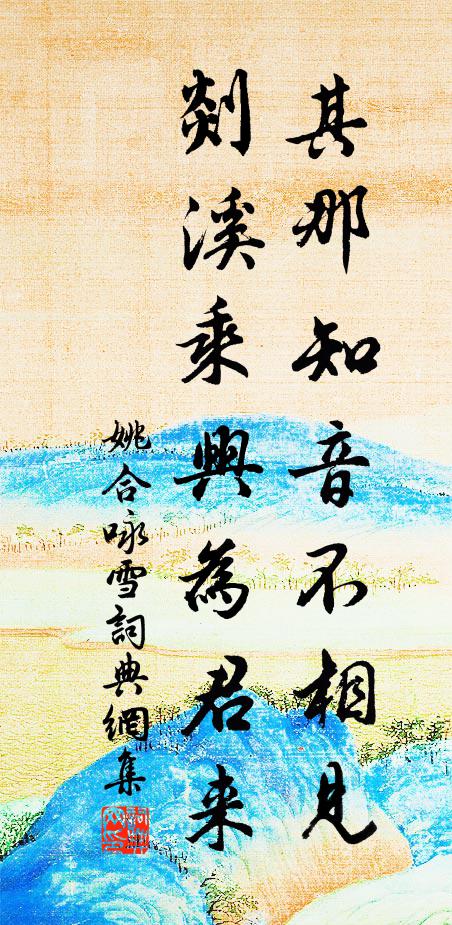 其那知音不相見
剡溪乘興為君来
姚合咏雪詞典網集